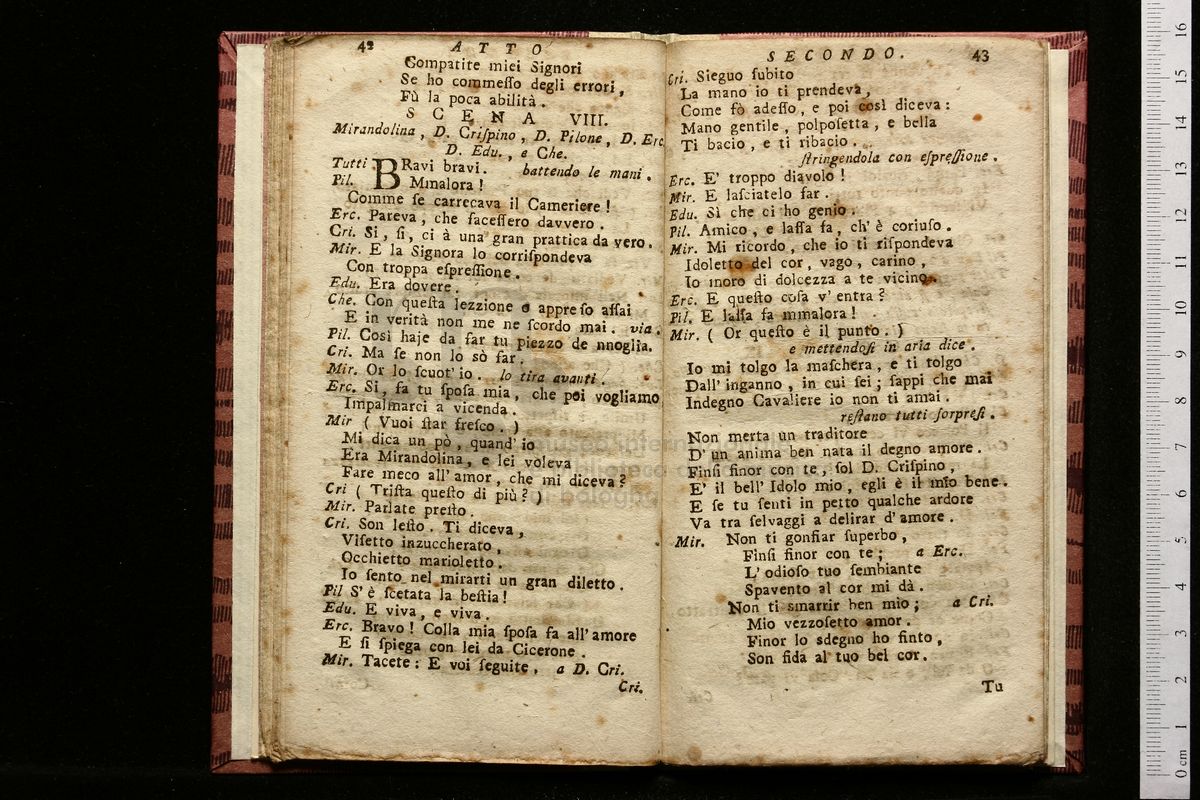 42 ATTO
Compatite miei Signori
Se ho commeſſo degli errori,
Fù la poca abilità.
SCENA VIII.
Mirandolina, D. Criſpino, D. Pilone, D. Erc.
D. Edu., e Che.
Tutti BRavi bravi. battendo le mani.
Pil. Mmalora!
Comme ſe carrecava il Cameriere!
Erc. Pareva, che faceſſero davvero.
Cri. Si, ſi, ci à una gran prattica da vero.
Mir. E la Signora lo corriſpondeva
Con troppa eſpreſſione.
Edu. Era dovere.
Che. Con queſta lezzione o appreſo aſſai
E in verità non me ne ſcordo mai. via.
Pil. Così haje da far tu piezzo de nnoglia.
Cri. Ma ſe non lo sò far.
Mir. Or lo ſcuot' io. lo tira avanti.
Erc. Si, fa tu ſpoſa mia, che poi vogliamo
Impalmarci a vicenda.
Mir (Vuoi ſtar freſco.)
Mi dica un pò, quand' io
Era Mirandolina, e lei voleva
Fare meco all' amor, che mi diceva?
Cri (Triſta queſto di più?)
Mir. Parlate preſto.
Cri. Son leſto. Ti diceva,
Viſetto inzuccherato,
Occhietto marioletto.
Io ſento nel mirarti un gran diletto.
Pil S' è ſcetata la beſtia!
Edu. E viva, e viva.
Erc. Bravo! Colla mia ſpoſa fa all' amore
E ſi ſpiega con lei da Cicerone.
Mir. Tacete: E voi ſeguite, a D. Cri.
Cri.
SECONDO. 43
Cri. Sieguo ſubito
La mano io ti prendeva,
Come fò adeſſo, e poi così diceva:
Mano gentile, polpoſetta, e bella
Ti bacio, e ti ribacio.
ſtringendola con eſpreſſione.
Erc. E' troppo diavolo!
Mir. E laſciatelo far.
Edu. Sì che ci ho genio.
Pil. Amico, e laſſa fa, ch' è coriuſo.
Mir. Mi ricordo, che io ti riſpondeva
Idoletto del cor, vago, carino,
Io moro di dolcezza a te vicino.
Erc. E queſto coſa v' entra?
Pil. E laſſa fa mmalora!
Mir. (Or queſto è il punto.)
e mettendoſi in aria dice.
Io mi tolgo la maſchera, e ti tolgo
Dall' inganno, in cui ſei; ſappi che mai
Indegno Cavaliere io non ti amai.
reſtano tutti ſorpreſi.
Non merta un traditore
D' un anima ben nata il degno amore.
Finſi finor con te, ſol D. Criſpino,
E' il bell' Idolo mio, egli è il mio bene.
E ſe tu ſenti in petto qualche ardore
Va tra ſelvaggi a delirar d' amore.
Mir. Non ti gonfiar ſuperbo,
Finſi finor con te; a Erc.
L' odioſo tuo ſembiante
Spavento al cor mi dà.
Non ti smarrir ben mio; a Cri.
Mio vezzoſetto amor.
Finor lo sdegno ho finto,
Son fida al tuo bel cor.
Tu
museo internazionale
biblioteca
di bologna
0 cm 1 2 3 4 5 6 7 8 9 10 11 12 13 14 15 16